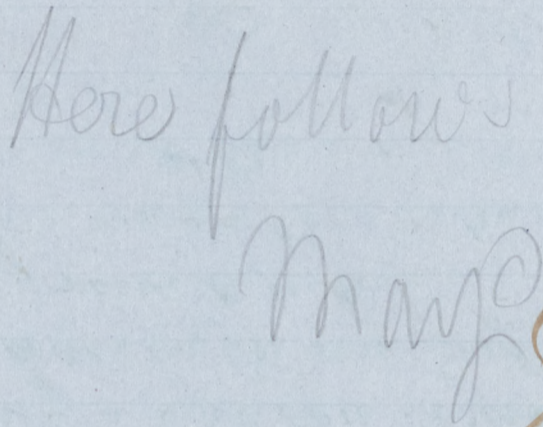 Here follows
Mayo